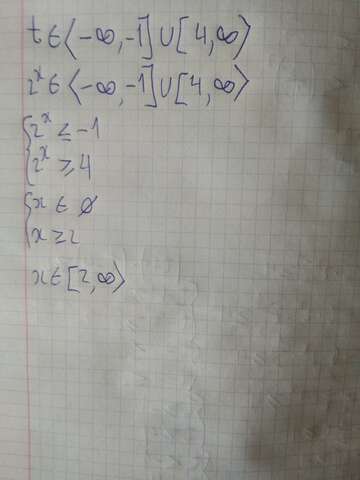 t ∈ ⟨-∞, -1] ∪ [4, ∞⟩
2ˣ ∈ ⟨-∞, -1] ∪ [4, ∞⟩
{ 2ˣ ≤ -1
2ˣ ≥ 4
{ x ∈ ∅
x ≥ 2
x ∈ [2, ∞⟩